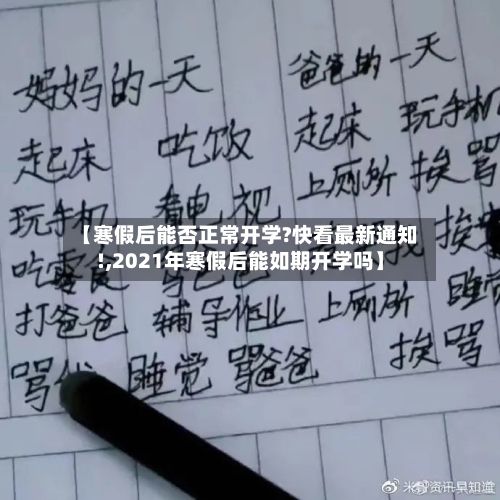 妈妈的一天 爸爸的一天
起床 吃饭 起床 玩手机
玩手机 看电视 上厕所 挨骂
【寒假后能否正常开学?快看最新通知
!,2021年寒假后能如期开学吗】
吃零食 骂爸爸 挨
打爸爸 辅导作业 上厕所 睡觉
骂我 睡觉 骂爸爸 挨骂
米粉资讯早知道